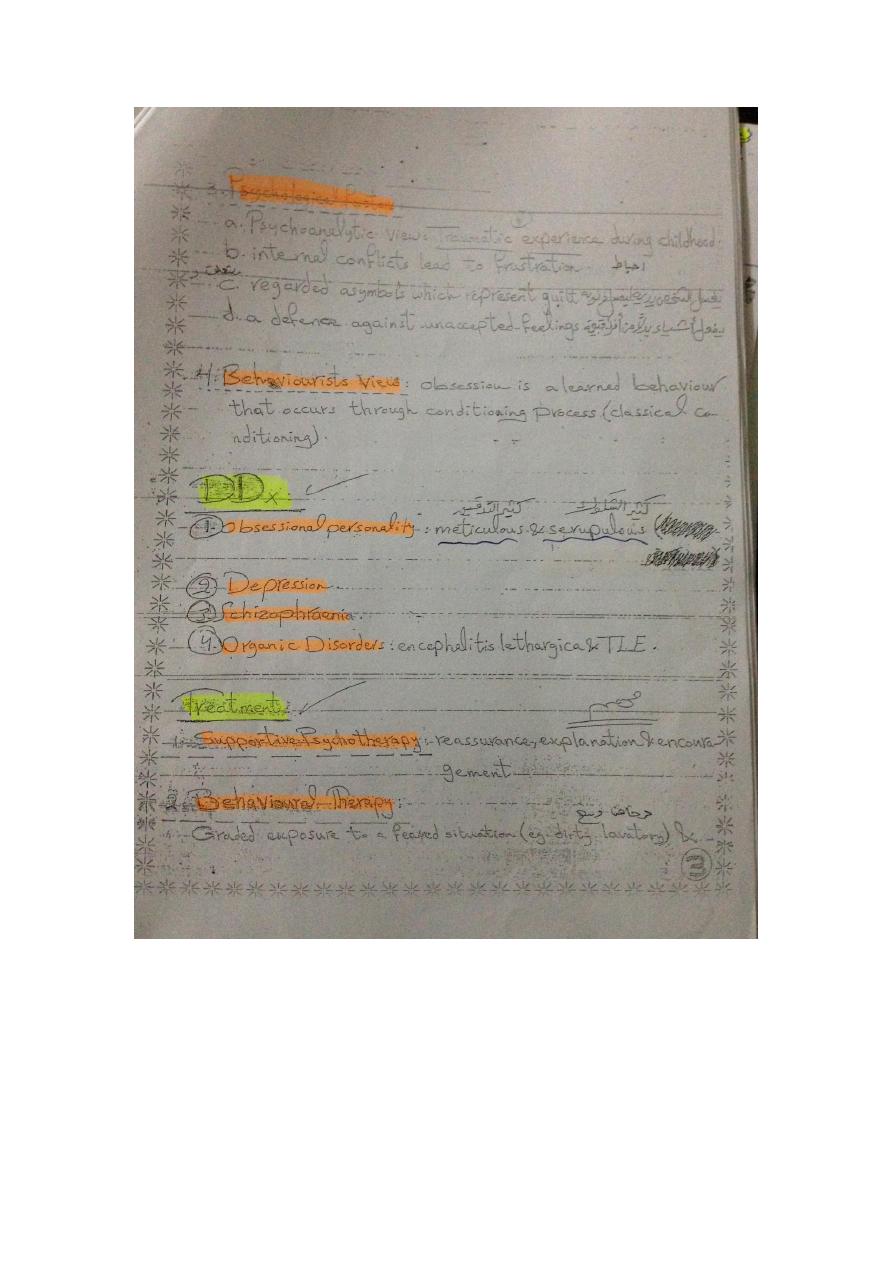 3. Psychological Factors
a. Psychoanalytic view: Traumatic experience during childhood.
b. internal conflicts lead to frustration احباط
c. regarded asymbols which represent guilt
d. a defence against unaccepted feelings
4. Behaviourists View: obsession is a learned behaviour
that occurs through conditioning process (classical co-
nditioning).
DDx
كثير التدقيق كثير الشك
1. Obsessional personality: meticulous & scrupulous
2. Depression.
3. Schizophraenia.
4. Organic Disorders: encephalitis lethargica & TLE.
Treatment:
1. Supportive Psychotherapy: reassurance, explanation & encoura-
gement
Behavioural Therapy:
Graded exposure to a feared situation (eg. dirty lavatory) &
3